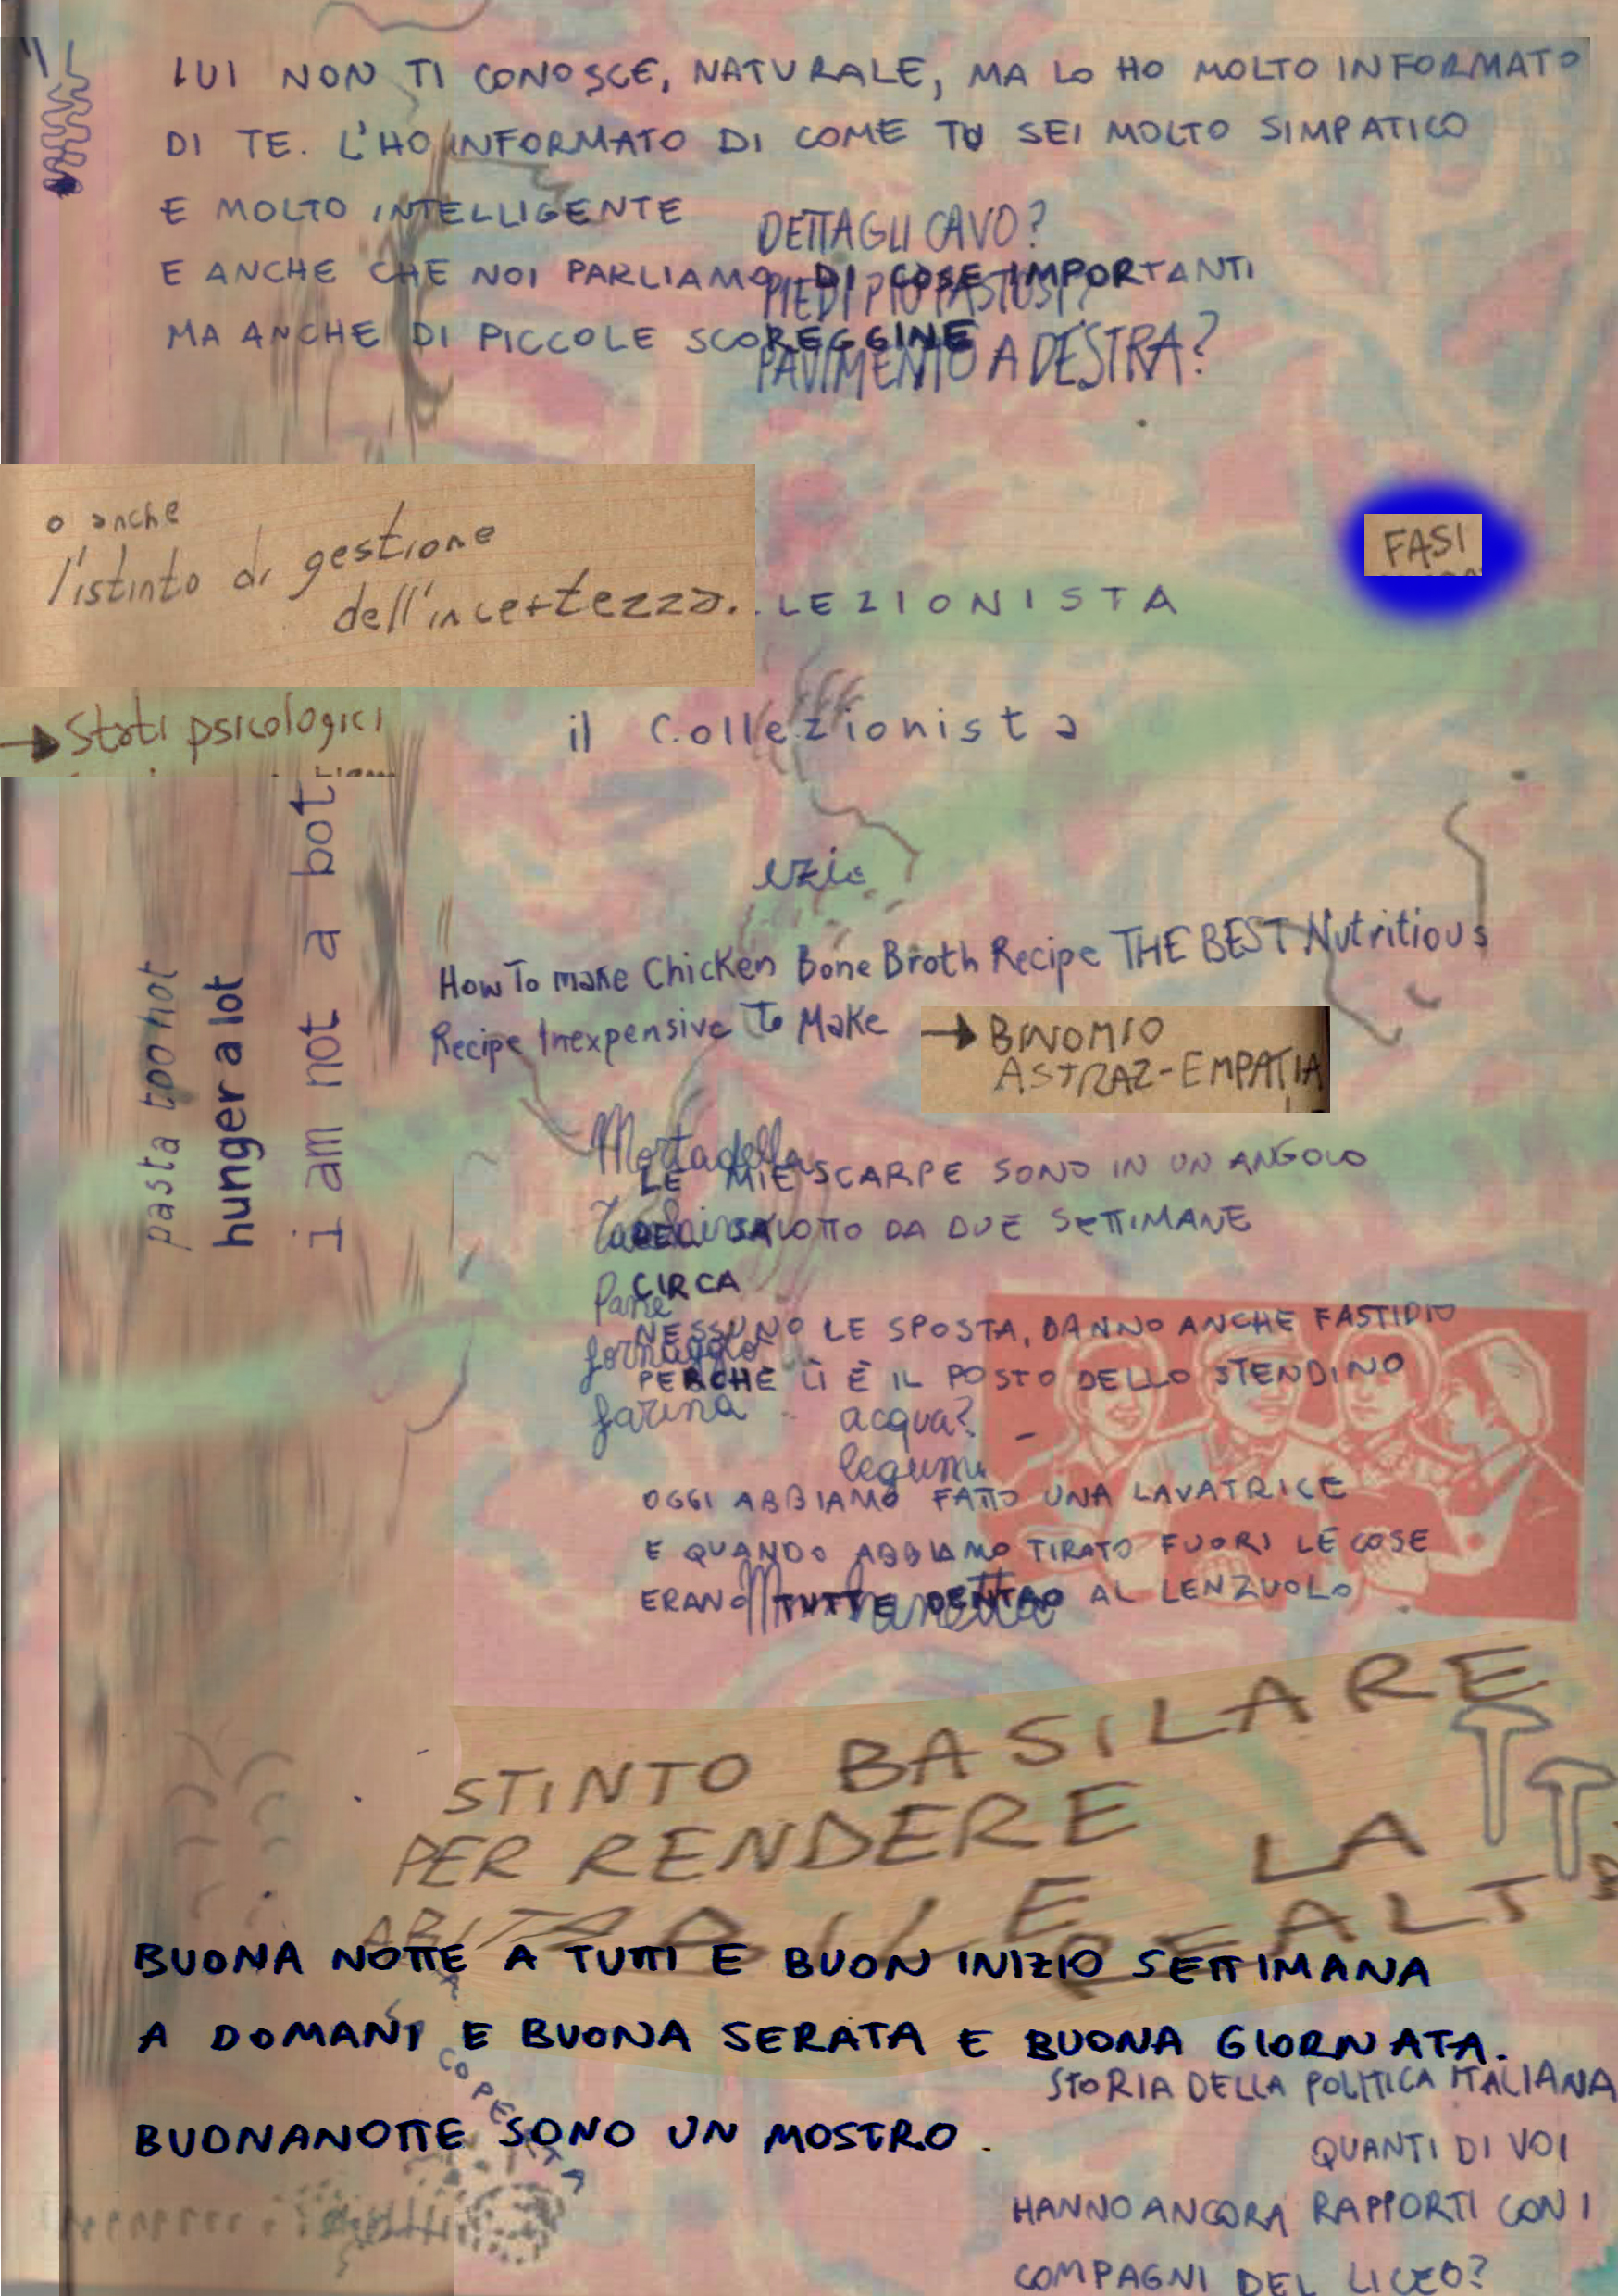 LUI NON TI CONOSCE, NATURALE, MA LO HO MOLTO INFORMATO
DI TE. L'HO INFORMATO DI COME TU SEI MOLTO SIMPATICO
E MOLTO INTELLIGENTE
E ANCHE CHE NOI PARLIAMO DI COSE IMPORTANTI
MA ANCHE DI PICCOLE SCOREGGINE
DETTAGLI CAVO?
PIEDI PIÙ FASTOSI?
PAVIMENTO A DESTRA?
o anche
l'istinto di gestione
dell'incertezza.
FASI
LEZIONISTA
→ Stati psicologici
il Collezionista
ezio
pasta too hot
hunger a lot
i am not a bot
How To make Chicken Bone Broth Recipe THE BEST Nutritious
Recipe Inexpensive To Make
→ BINOMIO
ASTRAZ-EMPATIA
Mortadella
Pane
farina
acqua?
legumi
LE MIE SCARPE SONO IN UN ANGOLO
DEL SALOTTO DA DUE SETTIMANE
CIRCA
NESSUNO LE SPOSTA, DANNO ANCHE FASTIDIO
PERCHÈ LÌ È IL POSTO DELLO STENDINO
OGGI ABBIAMO FATTO UNA LAVATRICE
E QUANDO ABBIAMO TIRATO FUORI LE COSE
ERANO TUTTE DENTRO AL LENZUOLO
STINTO BASILARE
PER RENDERE
ABITABILE LA
REALT
BUONA NOTTE A TUTTI E BUON INIZIO SETTIMANA
A DOMANI E BUONA SERATA E BUONA GIORNATA.
BUONANOTTE SONO UN MOSTRO.
STORIA DELLA POLITICA ITALIANA
QUANTI DI VOI
HANNO ANCORA RAPPORTI CON I
COMPAGNI DEL LICEO?